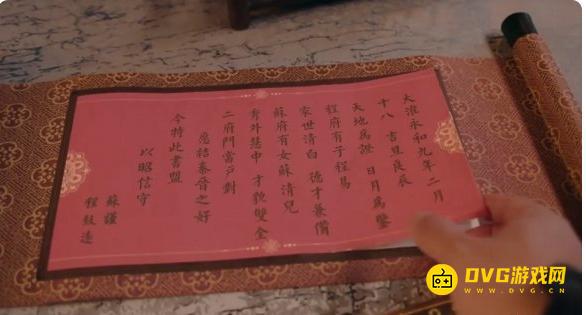 大淮永和九年二月
十八 吉旦良辰
天地為證 日月為鑒
程府有子程易
家世清白 德才兼備
蘇府有女蘇清兒
秀外慧中 才貌雙全
二府門當戶對
應結秦晉之好
今特此書盟
以昭信守
蘇謹
程啟遠
DVG游戏网
WWW.DVG.CN